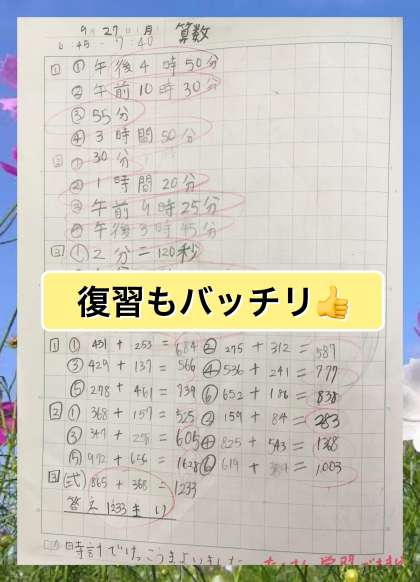 9月27日(月) 算数
6:45 - 7:40
1 ① 午後4時50分
② 午前10時30分
③ 55分
④ 3時間50分
2 ① 30分
② 1時間20分
③ 午前9時25分
④ 午後3時45分
3 ① 2分=120秒
復習もバッチリ👍
1 ① 431 + 253 = 684 ② 275 + 312 = 587
③ 429 + 137 = 566 ④ 536 + 241 = 777
⑤ 278 + 461 = 739 ⑥ 652 + 186 = 838
2 ① 368 + 157 = 525 ② 159 + 84 = 283
③ 347 + 258 = 605 ④ 825 + 543 = 1368
⑤ 972 + 656 = 1628 ⑥ 619 + 384 = 1003
3 (式) 865 + 368 = 1233
答え 1233まい
時計でけっこうまよいました